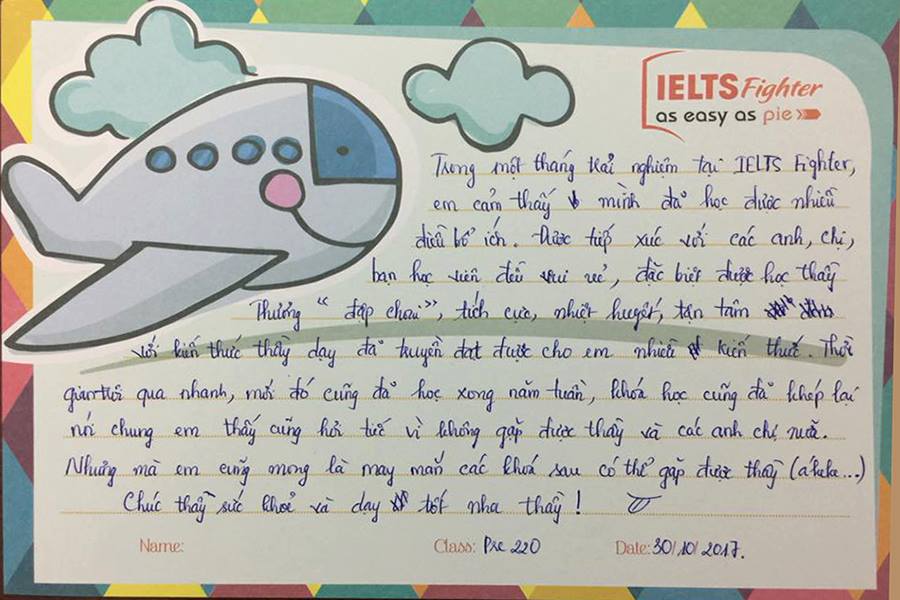 IELTS Fighter
as easy as pie
Trong một tháng trải nghiệm tại IELTS Fighter,
em cảm thấy mình đã học được nhiều
điều bổ ích. Được tiếp xúc với các anh, chị,
bạn học viên đều vui vẻ, đặc biệt được học thầy
Phương " đẹp chai", tích cực, nhiệt huyết, tận tâm
với kiến thức thầy dạy đã truyền đạt được cho em nhiều kiến thức. Thời
gian trôi qua nhanh, mới đó cũng đã học xong năm tuần, khóa học cũng đã khép lại
nói chung em thấy cũng hơi tiếc vì không gặp được thầy và các anh chị nữa.
Nhưng mà em cũng mong là may mắn các khoá sau có thể gặp được thầy (a'hihi...)
Chúc thầy sức khoẻ và dạy tốt nha thầy !
Name: Class: Pre 220 Date: 30/10/2017.